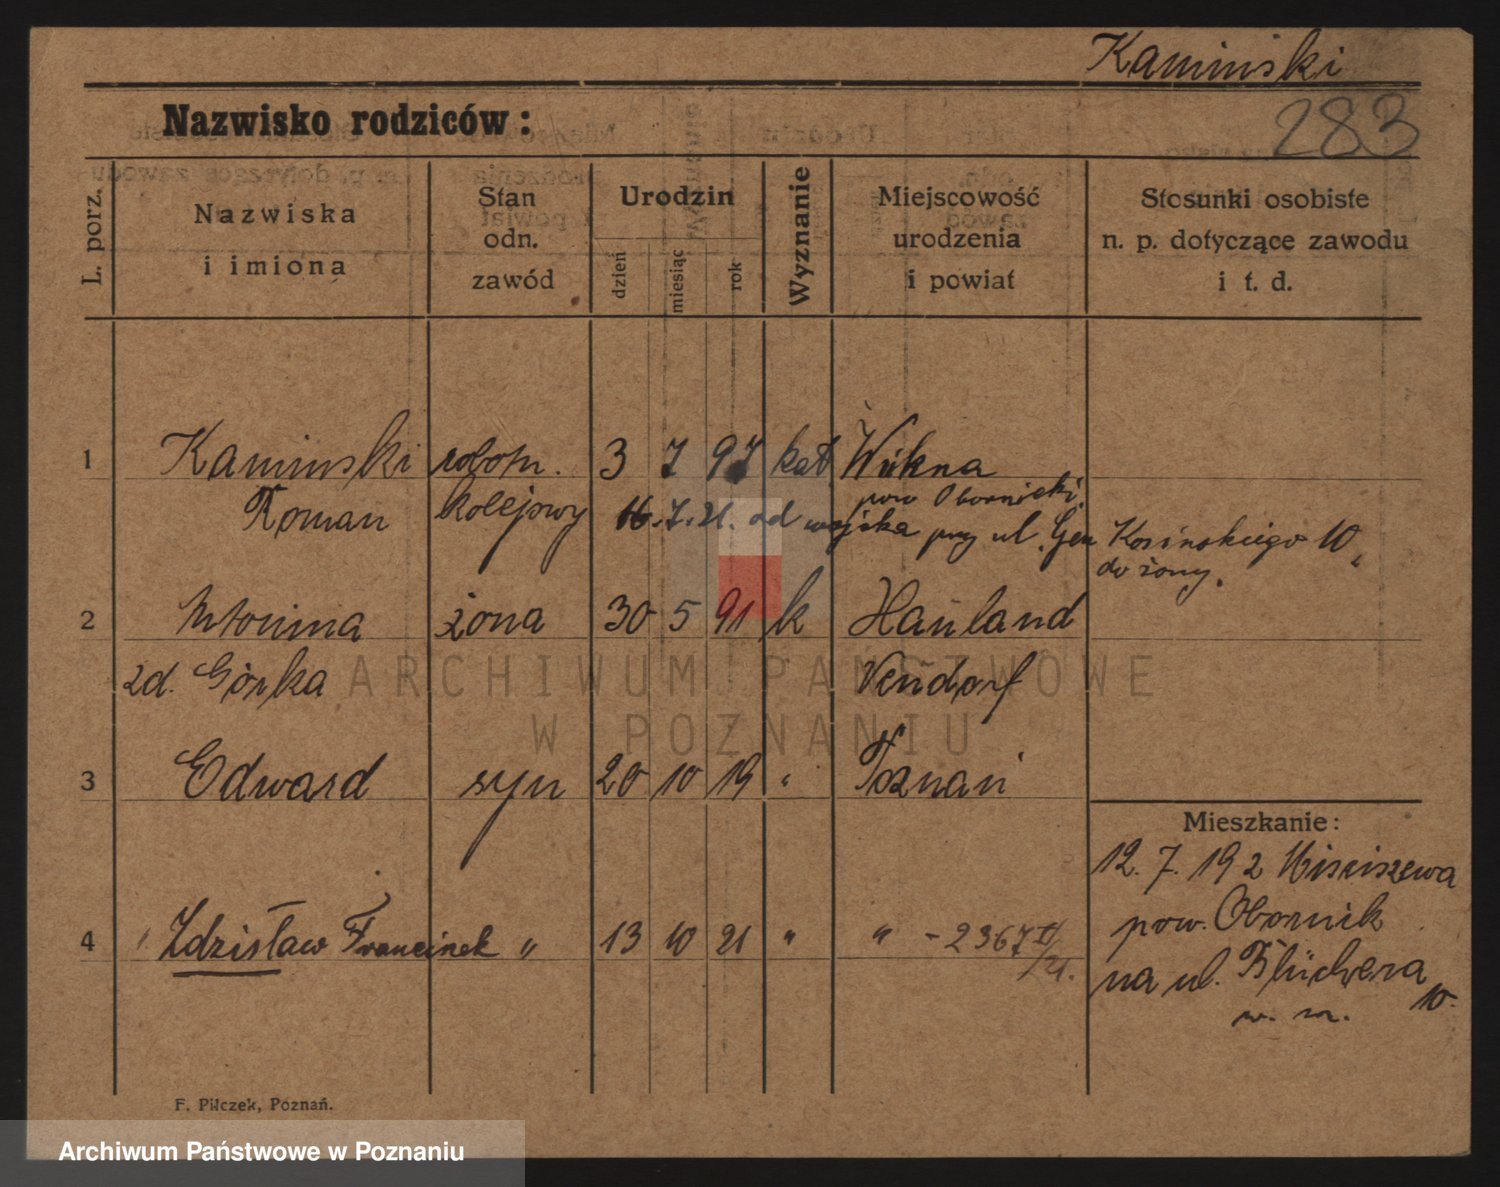 Kaminski
283
Nazwisko rodziców:
L. porz.
Nazwiska
i imiona
Stan
odn.
zawód
Urodzin
dzień
miesiąc
rok
Wyznanie
Miejscowość
urodzenia
i powiat
Stosunki osobiste
n. p. dotyczące zawodu
i t. d.
1 Kaminski robotn. 3 7 97 kat Wŭkna
pow Obornicki,
Roman kolejowy 16.7.21. od wojska przy ul. Gen Kosinskiego 10,
do żony.
2 Antonina żona 30 5 91 k Haŭland
zd. Górka
ARCHIWUM PAŃSTWOWE
W POZNANIU
3 Edward syn 20 10 19 " Poznań
Mieszkanie:
12. 7. 192 Mściszewa
pow. Obornik
na ul. Blüchera
10.
w. m.
4 Zdzisław Francisek " 13 10 21 " " - 2367 II/21.
F. Pilczek, Poznań.
Archiwum Państwowe w Poznaniu